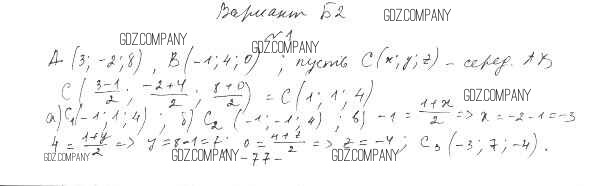 Вариант Б2 GDZ.COMPANY
GDZ.COMPANY №1 GDZ.COMPANY
A (3; -2; 8), B (-1; 4; 0); пусть C (x; y; z) - серед. AB
C ( \frac{3-1}{2}; \frac{-2+4}{2}; \frac{8+0}{2} ) = C (1; 1; 4) GDZ.COMPANY
а) C₁ (-1; 1; 4); б) C₂ (-1; -1; 4); в) -1 = \frac{1+x}{2} => x = -2-1 = -3
4 = \frac{1+y}{2} => y = 8-1 = 7; 0 = \frac{4+z}{2} => z = -4; C₃ (-3; 7; -4).
GDZ.COMPANY GDZ.COMPANY -77- GDZ.COMPANY